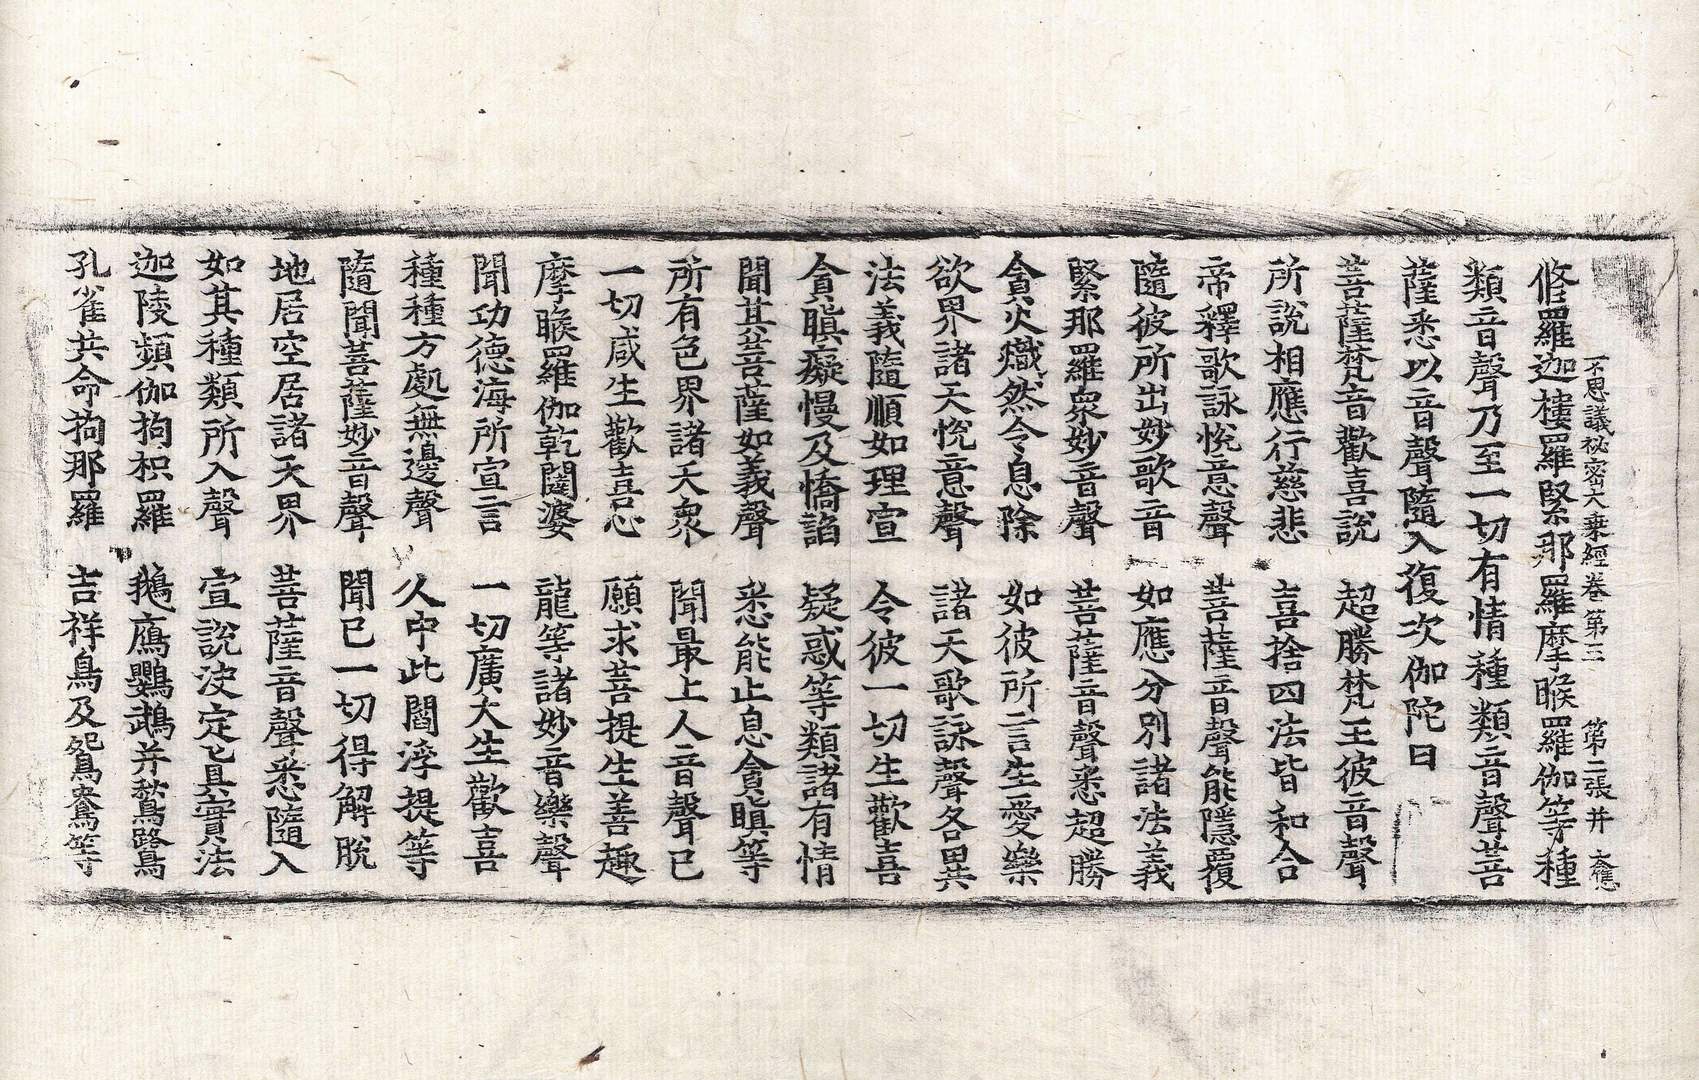 不思議祕密大乗經卷 第三 第二張 幷
修羅迦樓羅緊那羅摩睺羅伽等種
類音聲乃至一切有情種類音聲菩
薩悉以音聲隨入復次伽陀曰
菩薩梵音歡喜說 超勝梵王彼音聲
所說相應行慈悲 喜捨四法皆和合
帝釋歌詠悅意聲 菩薩音聲能隱覆
隨彼所出妙歌音 如應分別諸法義
緊那羅衆妙音聲 菩薩音聲悉超勝
貪火熾然令息除 如彼所言生愛樂
欲界諸天悅意聲 諸天歌詠聲各異
法義隨順如理宣 令彼一切生歡喜
貪瞋癡慢及憍諂 疑惑等類諸有情
聞其菩薩如義聲 悉能止息貪瞋等
所有色界諸天衆 聞最上人音聲已
一切咸生歡喜心 願求菩提生善趣
摩睺羅伽乾闥婆 龍等諸妙音樂聲
聞功德海所宣言 一切廣大生歡喜
種種方處無邊聲 久中此閻浮提等
隨聞菩薩妙音聲 聞已一切得解脫
地居空居諸天界 菩薩音聲悉隨入
如其種類所入聲 宣說決定真實法
迦陵頻伽拘枳羅 鵝鴈鸚鵡幷鶖鷺
孔雀共命拘那羅 吉祥鳥及鴛鴦等